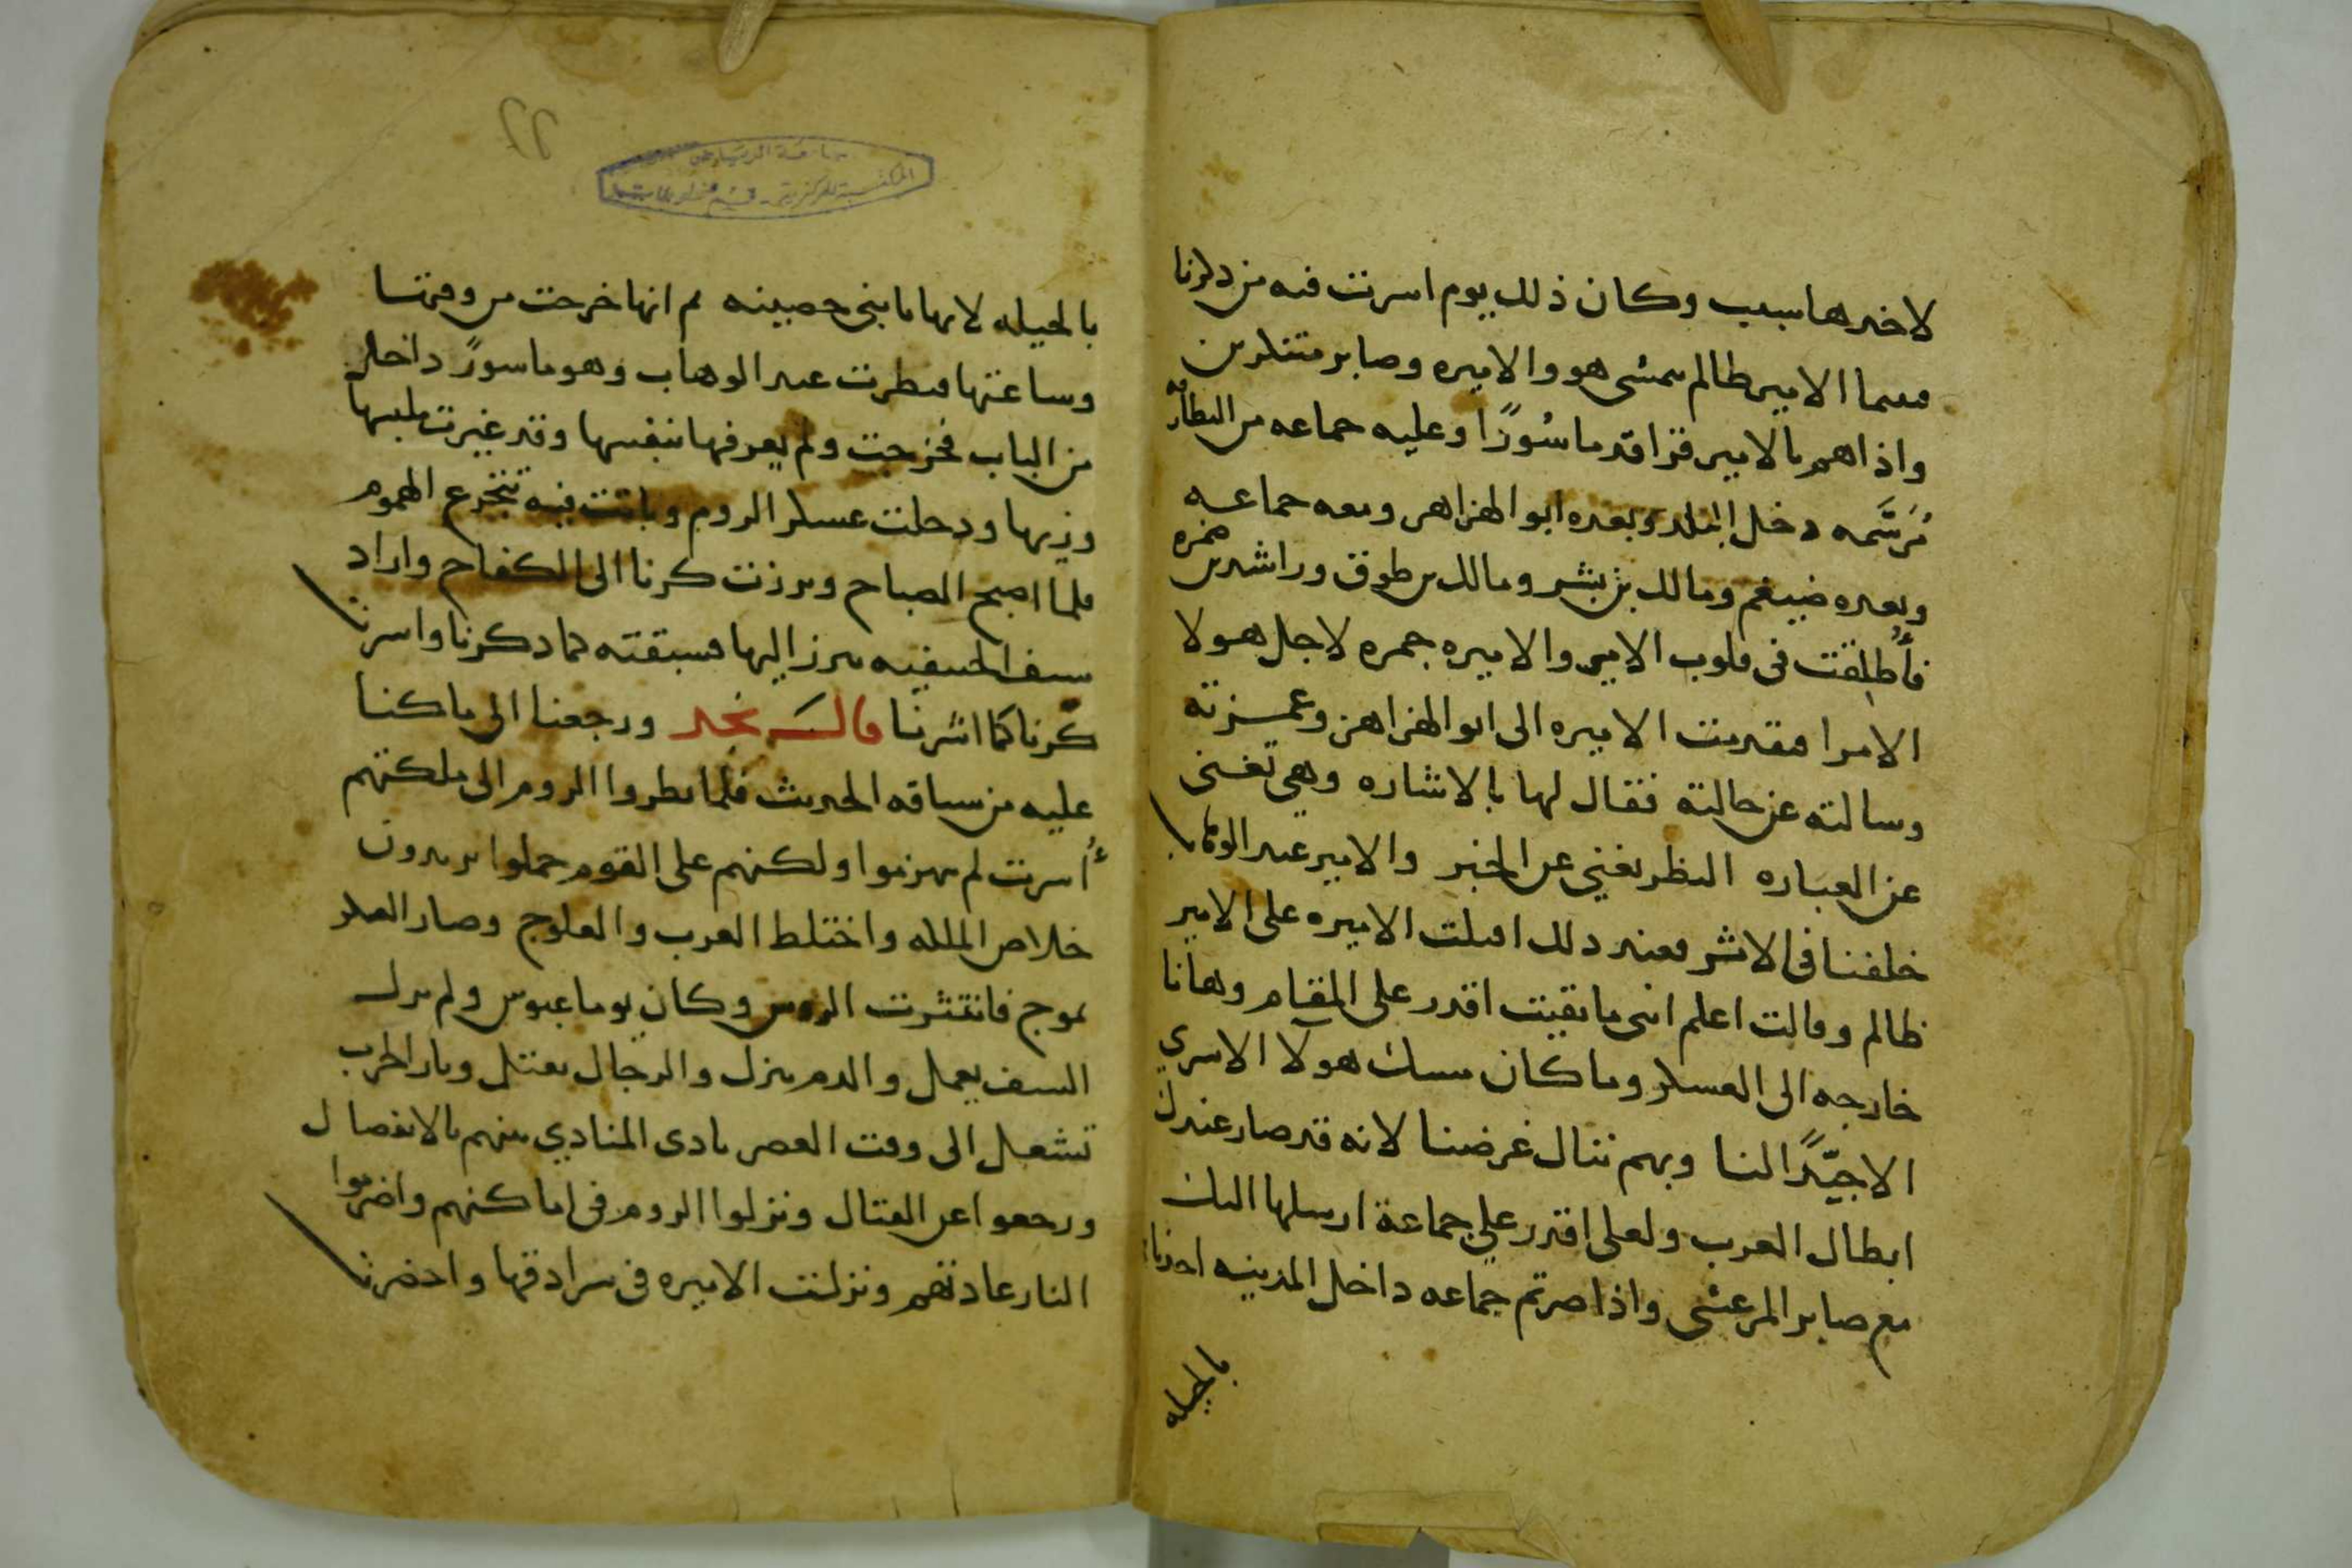 لاخدها سبب وكان ذلك يوم اسرت فيه من دلونا
فبينما الامير ظالم يمشى هو والاميره وصابر متنكرين
واذاهم بالامير قراقد ماسُورًا وعليه جماعه من البطارقه
مُرسَّمه دخل البلد وبعده ابو الهزاهز ومعه جماعه
وبعده ضيغم ومالك بن بشر ومالك بن طوق وراشد بن حمزه
فأُطلقت فى قلوب الامير والاميره جمره لاجل هولا
الامرا فتقدمت الاميره الى ابو الهزاهز وغمزته
وسالته عن حالته فقال لها بالاشاره وهي تغنى
عن العباره النظر يغني عن الخبر والامير عبد الوهاب
خلفنا فى الاثر فعند ذلك اقبلت الاميره على الامير
ظالم وقالت اعلم انى ما بقيت اقدر على المقام وها انا
خارجه الى العسكر وما كان مسك هولآ الاسري
الا جيّدًا لنا وبهم ننال غرضنا لانه قد صار عندك
ابطال العرب ولعلى اقدر على جماعة ارسلها اليك
مع صابر المرعشى واذا صرتم جماعه داخل المدينه اخذناها
بالحيله
٢٢
جامعة الرياض
المكتبة المركزية - قسم المخطوطات
بالحيله لانها يابنى حصينه ثم انها خرجت من وقتها
وساعتها فنظرت عبد الوهاب وهو ماسورً داخل
من الباب فخرجت ولم يعرفها بنفسها وقد غيرت ملبسها
وزيها ودخلت عسكر الروم وباتت فيه تتجرع الهموم
فلما اصبح الصباح وبرزت كرنا الى الكفاح واراد
سيف الحنيفيه يبرز اليها فسبقته كما ذكرنا واسرت
كرنا كما اشرنا قال نجد ورجعنا الى ما كنا
عليه من سياقه الحديث فلما نظروا الروم الى ملكتهم
أُسرت لم يهزموا ولكنهم على القوم حملوا يريدون
خلاص الملكه واختلط العرب والعلوج وصار العسكر
يموج فانتثرت الروس وكان يوما عبوس ولم يزل
السيف يعمل والدم ينزل والرجال تقتل ونار الحرب
تشعل الى وقت العصر نادى المنادي بينهم بالانفصال
ورجعوا عن القتال ونزلوا الروم فى اماكنهم واضرموا
النار عادتهم ونزلت الاميره فى سرادقها واحضرت